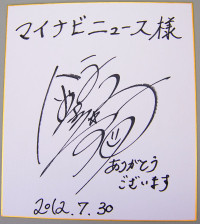 マイナビニュース様
ありがとう
ございます
2012.7.30